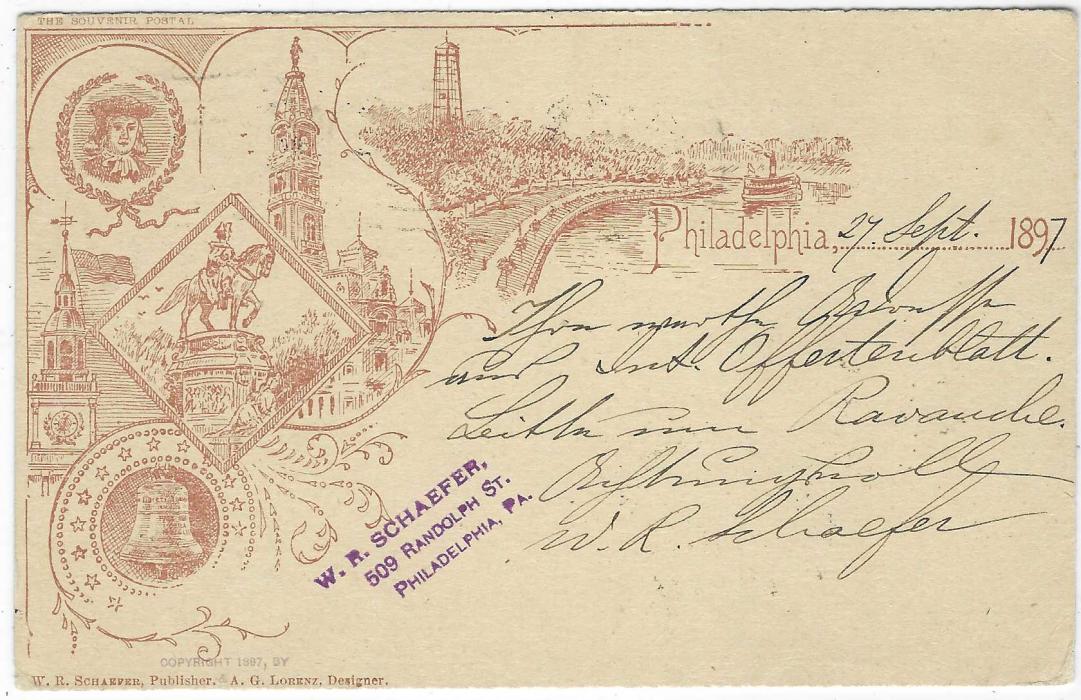 THE SOUVENIR POSTAL
Philadelphia, 27. Sept. 1897
Ihre werthe
und Int. Offertenblatt.
Ravanche.
W. R. Schaefer
W. R. SCHAEFER,
509 RANDOLPH ST.
PHILADELPHIA, PA.
COPYRIGHT 1897, BY
W. R. SCHAEFER, Publisher. A. G. LORENZ, Designer.